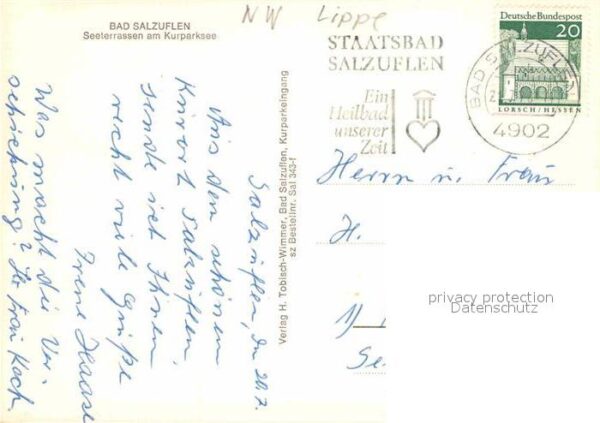 BAD SALZUFLEN
Seeterrassen am Kurparksee
NW Lippe
STAATSBAD
SALZUFLEN
Ein
Heilbad
unserer
Zeit
Deutsche Bundespost
20
LORSCH/HESSEN
BAD SALZUFLEN
4902
Salzuflen, den 20.7.
Aus dem schönen
Kurort Salzuflen,
sende ich Ihnen
recht viele Grüße
Irene Haase
Was macht die Ver-
schickung? Ihr Frau Koch.
Verlag H. Tobisch-Wimmer, Bad Salzuflen, Kurparkeingang
sz Bestellnr. Sal 343-f
Herrn u. Frau
H.
privacy protection
Datenschutz